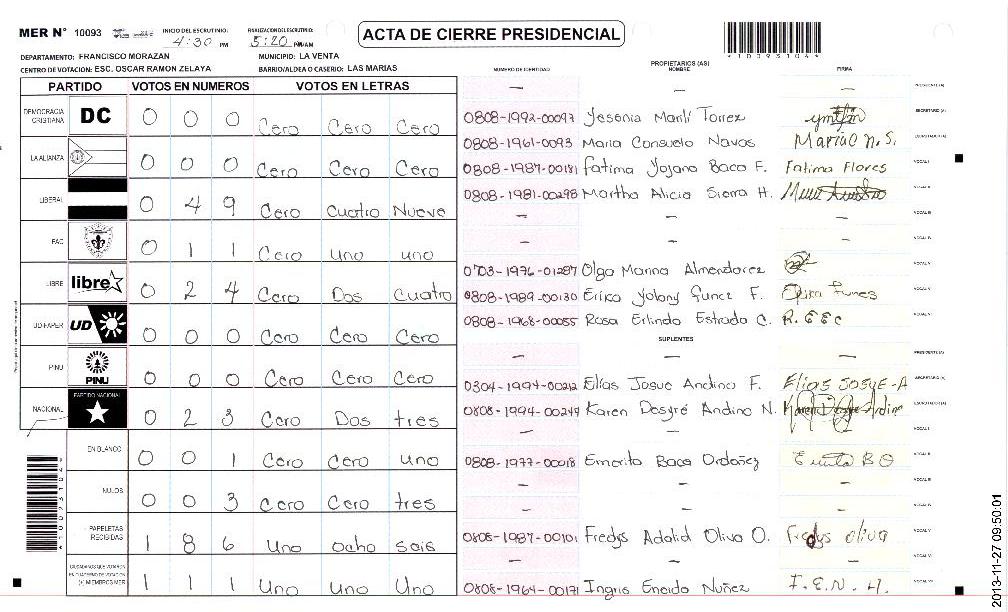 MER N° 10093 INICIO DEL ESCRUTINIO: 4:30 PM FINALIZACION DEL ESCRUTINIO: 5:20 PM/AM ACTA DE CIERRE PRESIDENCIAL
DEPARTAMENTO: FRANCISCO MORAZAN MUNICIPIO: LA VENTA
CENTRO DE VOTACION: ESC. OSCAR RAMON ZELAYA BARRIO/ALDEA O CASERIO: LAS MARIAS
PARTIDO VOTOS EN NUMEROS VOTOS EN LETRAS
DEMOCRACIA CRISTIANA DC 0 0 0 Cero Cero Cero
LA ALIANZA 0 0 0 Cero Cero Cero
LIBERAL 0 4 9 Cero Cuatro Nueve
PAC 0 1 1 Cero uno uno
LIBRE libre 0 2 4 Cero Dos Cuatro
UD-FAPER UD 0 0 0 Cero Cero Cero
PINU PINU 0 0 0 Cero Cero Cero
NACIONAL PARTIDO NACIONAL 0 2 3 Cero Dos tres
EN BLANCO 0 0 1 Cero Cero uno
NULOS 0 0 3 Cero Cero tres
PAPELETAS RECIBIDAS 1 8 6 Uno ocho seis
CIUDADANOS QUE VOTARON EN CUADERNO DE VOTACION (+) MIEMBROS MER 1 1 1 Uno Uno Uno
PROPIETARIOS (AS)
NUMERO DE IDENTIDAD NOMBRE FIRMA
— — — PRESIDENTE (A)
0808-1992-00097 Yesenia Marli Torrez SECRETARIO (A)
0808-1961-0093 Maria Consuelo Navas
0808-1987-00181 Fatima Yojana Baca F. Fatima Flores VOCAL I
0808-1981-00298 Martha Alicia Sierra H. VOCAL II
— — — VOCAL III
— — — VOCAL IV
0703-1976-01287 Olga Marina Almendarez VOCAL V
0808-1989-00130 Erica Yolany Funez F. Erica Funes
0808-1968-00055 Rosa Erlinda Estrada C.
SUPLENTES
— — — PRESIDENTE (A)
0304-1994-00212 Elías Josue Andino F. Elías JOSUE-A SECRETARIO (A)
0808-1994-00249 Karen Desyré Andino N.
— — — VOCAL I
0808-1977-00018 Emerita Baca Ordoñez VOCAL II
— — — VOCAL III
— — — VOCAL IV
0808-1987-00101 Fredys Adalid Oliva O. Fredys oliva VOCAL V
— — — VOCAL VI
0808-1964-00171 Ingris Eneida Nuñez I.E.N.H.
2013-11-27 09:50:01